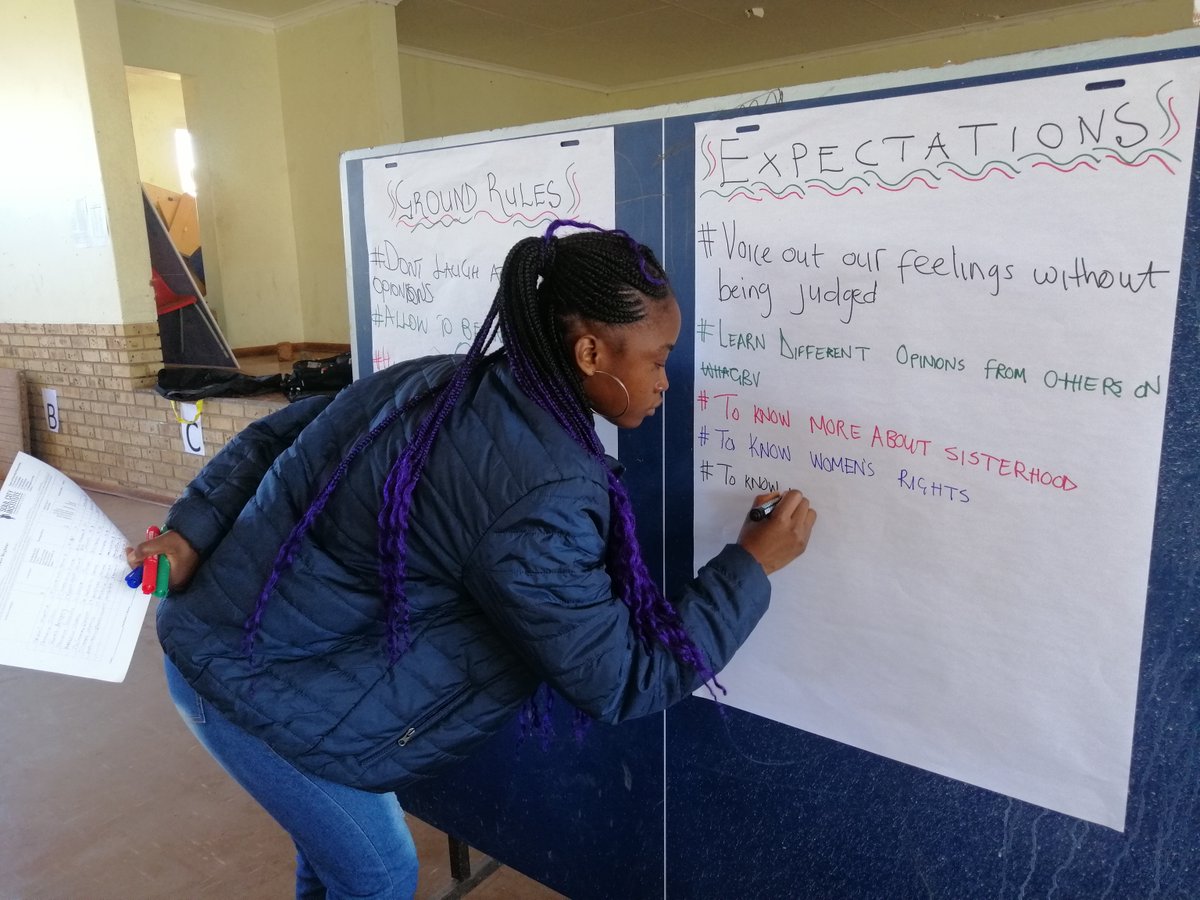 GROUND RULES
#DONT LAUGH
OPINIONS
#ALLOW TO BE
EXPECTATIONS
# Voice out our feelings without
being judged
# LEARN DIFFERENT OPINIONS FROM OTHERS ON
WHAGBV
# TO KNOW MORE ABOUT SISTERHOOD
# TO KNOW WOMEN'S RIGHTS
# TO KNOW
B
C